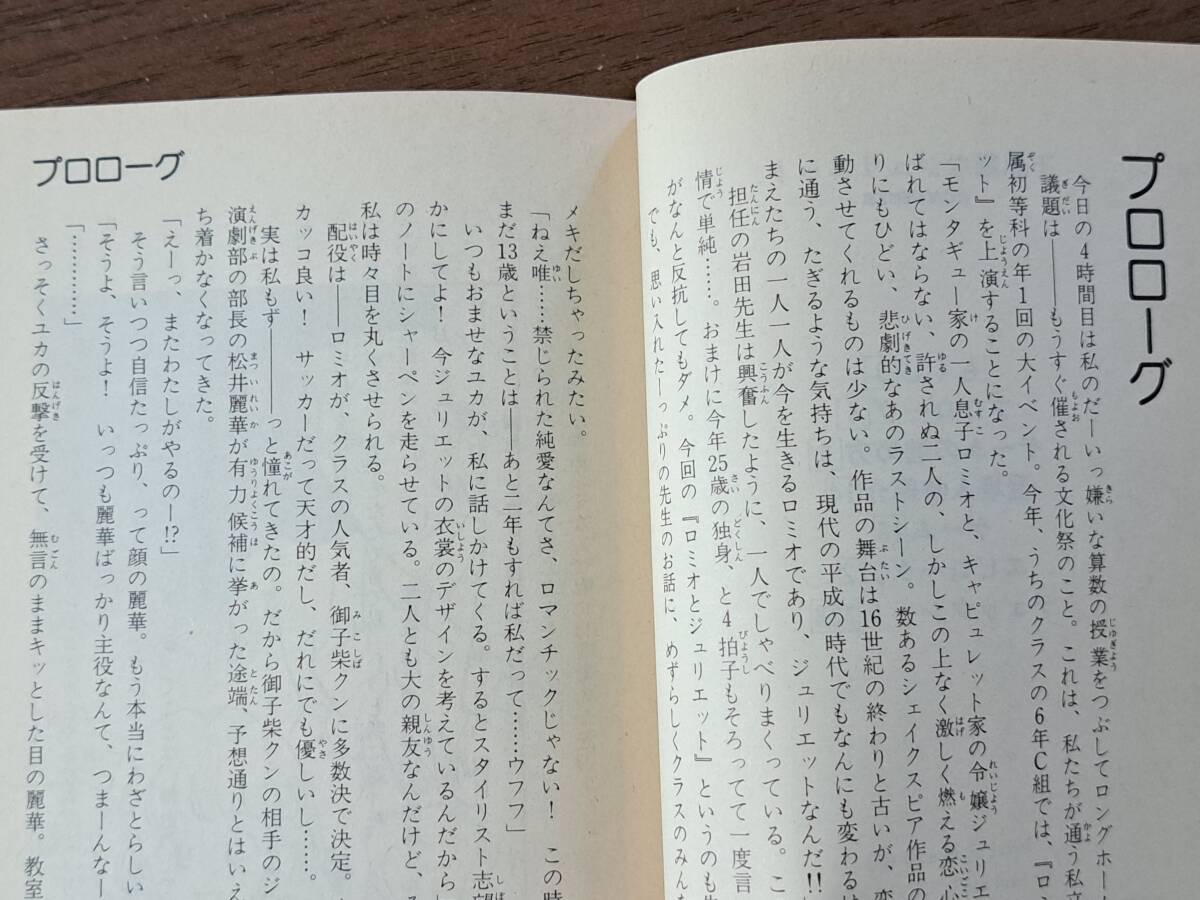 プロローグ
今日の4時間目は私のだーいっ嫌いな算数の授業をつぶしてロングホー
議題は――もうすぐ催される文化祭のこと。これは、私たちが通う私立
属初等科の年1回の大イベント。今年、うちのクラスの6年C組では、『ロ
ット』を上演することになった。
「モンタギュー家の一人息子ロミオと、キャピュレット家の令嬢ジュリエ
ばれてはならない、許されぬ二人の、しかしこの上なく激しく燃える恋心
りにもひどい、悲劇的なあのラストシーン。数あるシェイクスピア作品の
動させてくれるものは少ない。作品の舞台は16世紀の終わりと古いが、恋
に通う、たぎるような気持ちは、現代の平成の時代でもなんにも変わるは
まえたちの一人一人が今を生きるロミオであり、ジュリエットなんだ!!
担任の岩田先生は興奮したように、一人でしゃべりまくっている。こ
情で単純……。おまけに今年25歳の独身、と4拍子もそろってて一度言
がなんと反抗してもダメ。今回の『ロミオとジュリエット』というのも
でも、思い入れたーっぷりの先生のお話に、めずらしくクラスのみん
プロローグ
メキだしちゃったみたい。
「ねえ唯……禁じられた純愛なんてさ、ロマンチックじゃない! この時
まだ13歳ということは――あと二年もすれば私だって……ウフフ」
いつもおませなユカが、私に話しかけてくる。するとスタイリスト志望
かにしてよ! 今ジュリエットの衣裳のデザインを考えているんだから
のノートにシャーペンを走らせている。二人とも大の親友なんだけど、
私は時々目を丸くさせられる。
配役は――ロミオが、クラスの人気者、御子柴クンに多数決で決定。
カッコ良い! サッカーだって天才的だし、だれにでも優しいし……。
実は私もず――――っと憧れてきたの。だから御子柴クンの相手のジ
演劇部の部長の松井麗華が有力候補に挙がった途端、予想通りとはいえ
ち着かなくなってきた。
「えーっ、またわたしがやるのー!?」
そう言いつつ自信たっぷり、って顔の麗華。もう本当にわざとらしい
「そうよ、そうよ! いっつも麗華ばっかり主役なんて、つまーんなー
「…………」
さっそくユカの反撃を受けて、無言のままキッとした目の麗華。教室